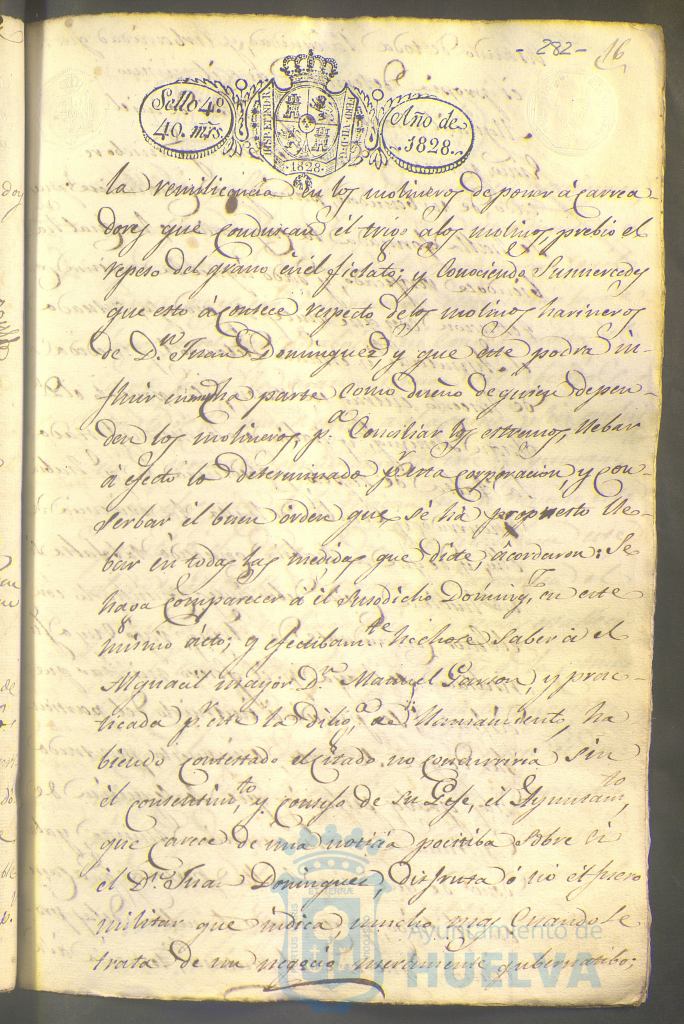 - 282 -
16
Sello 4º
40 mrs
HISP. ET IND. R.
FERD. VII. D. G.
1828
Año de
1828.
la reinsidencia en los molineros de poner á carrea-
dores que conduscan el trigo alos molinos, prebio el
repeso del grano en el fielato; y Conociendo Susmercedes
que esto áconsece respecto delos molinos harineros
de D.n Juan Dominguez, y que este podra in-
fluir en mucha parte como dueño de quien depen-
den los molineros; p.a Conciliar los estremos, llebar
á efecto lo determinado por esta corporacion, y con-
serbar el buen órden que se há propuesto lle-
bar en todas las medidas que dicte, acordaron: Se
haga comparecer á el Susodicho Doming.z en este
mismo ácto; y efectibam.te hechose saber á el
Alguacil mayor D.n Manuel Garzon, y prac-
ticada p.r este la dilig.a de llamamiento, ha
biendo contestado el citado no concurriria sin
el consentim.to y consejo de su Gefe, el Ayuntam.to
que carece de una noticia pocitiba sobre si
el D.n Juan Dominguez, disfruta ó no el fuero
militar que indica, mucho mas Cuando se
trata de un negocio meramente gubernatibo;
Ayuntamiento de
HUELVA